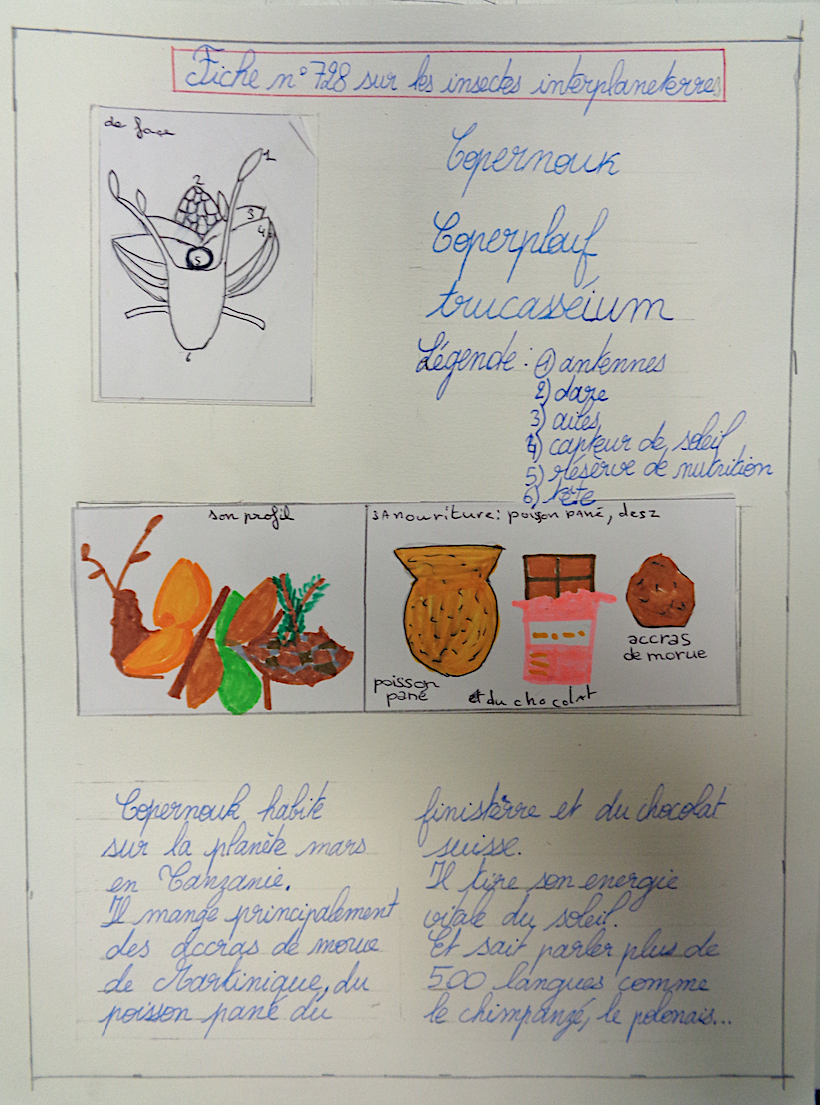 Fiche n° 728 sur les insectes interplaneterres
de face
1
2
3
4
5
6
Copernouk
Coperplouf
trucasséium
Légende : 1) antennes
2) dare
3) ailes
4) capteur de soleil
5) réserve de nutrition
6) tête
son profil
SA nouriture: poisson PANÉ, desz
poisson
pané
et du chocolat
accras
de morue
Copernouk habite
sur la planète mars
en Tanzanie.
Il mange principalement
des accras de morue
de Martinique, du
poisson pané du
finistèrre et du chocolat
suisse.
Il tire son energie
vitale du soleil.
Et sait parler plus de
500 langues comme
le chimpanzé, le polonais...